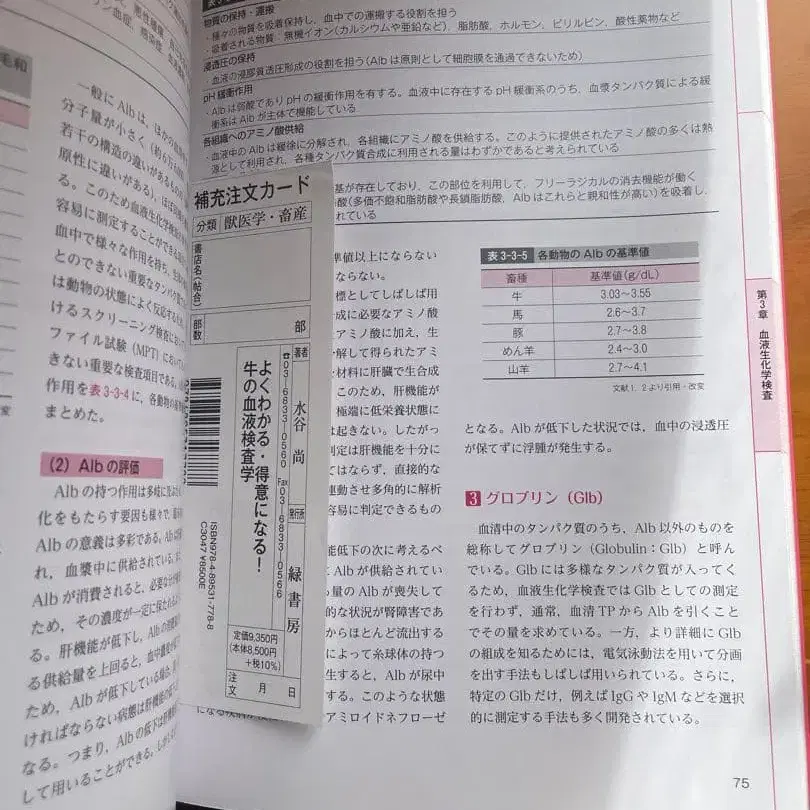 物質の保持・運搬
・種々の物質を吸着保持し、血中での運搬する役割を担う
・吸着される物質：無機イオン(カルシウムや亜鉛など)、脂肪酸、ホルモン、ビリルビン、酸性薬物など
浸透圧の保持
・血液の浸膠質透圧形成の役割を担う(Albは原則として細胞膜を通過できないため)
pH緩衝作用
・Albは弱酸でありpHの緩衝作用を有する。血液中に存在するpH緩衝系のうち、血漿タンパク質による緩
衝系はAlbが主体で機能している
各組織へのアミノ酸供給
・血液中のAlbは緩徐に分解され、各組織にアミノ酸を供給する。このように提供されたアミノ酸の多くは熱
源として利用され、各種タンパク質合成に利用される量はわずかであると考えられている
基が存在しており、この部位を利用して、フリーラジカルの消去機能が働く
酸(多価不飽和脂肪酸や長鎖脂肪酸、Albはこれらと親和性が高い)を吸着し、
れている
一般にAlbは、ほかの血
分子量が小さく(約6万
若干の構造の違いがあるもの
原性に違いがある)、ほぼ
る。このため血液生化学検査
容易に測定することができる
血中で様々な作用を持ち、生
とのできない重要なタンパク
は動物の状態によく反応する
けるスクリーニング検査
ファイル試験(MPT)におい
きない重要な検査項目である。
作用を表3-3-4に、各動物の
まとめた。
(2) Albの評価
Albの持つ作用は多岐に
化をもたらす要因も様々で、
Albの意義は多彩である。Alb
れ、血漿中に供給されている。
Albが消費されると、必要な分
ため、その濃度が一定に保たれ
る。肝機能が低下し、Albの
る供給量を上回ると、血中濃度が
ため、Albが低下している場合、
ければならない病態は肝機能の
なる。つまり、Albの低下は肝機
して用いることができる。しかし
補充注文カード
分類 獣医学・畜産
書店名(帖合)
部数 部
著者 水谷 尚
発行所 緑書房
☎03-6833-0560 Fax03-6833-0566
よくわかる・得意になる！
牛の血液検査学
ISBN978-4-89531-778-8
C3047 ¥8500E
定価9,350円
(本体8,500円
+税10%)
注文 月 日
準値以上にならない
ならない。
標としてしばしば用
成に必要なアミノ酸
アミノ酸に加え、生
分解して得られたアミ
な材料に肝臓で生合成
このため、肝機能が
極端に低栄養状態に
は起きない。したがっ
判定は肝機能を十分に
てはならず、直接的な
連動させ多角的に解析
容易に判定できるもの
能低下の次に考えるべ
Albが供給されてい
量のAlbが喪失して
的な状況が腎障害であ
からほとんど流出する
によって糸球体の持つ
生すると、Albが尿中
する。このような状態
アミロイドネフローゼ
表3-3-5 各動物のAlbの基準値
畜種 基準値(g/dL)
牛 3.03〜3.55
馬 2.6〜3.7
豚 2.7〜3.8
めん羊 2.4〜3.0
山羊 2.7〜4.1
文献1、2より引用・改変
となる。Albが低下した状況では、血中の浸透圧
が保てずに浮腫が発生する。
3 グロブリン(Glb)
血清中のタンパク質のうち、Alb以外のものを
総称してグロブリン(Globulin：Glb)と呼ん
でいる。Glbには多様なタンパク質が入ってく
るため、血液生化学検査ではGlbとしての測定
を行わず、通常、血清TPからAlbを引くこと
でその量を求めている。一方、より詳細にGlb
の組成を知るためには、電気泳動法を用いて分画
を出す手法もしばしば用いられている。さらに、
特定のGlbだけ、例えばIgGやIgMなどを選択
的に測定する手法も多く開発されている。
第3章 血液生化学検査
75